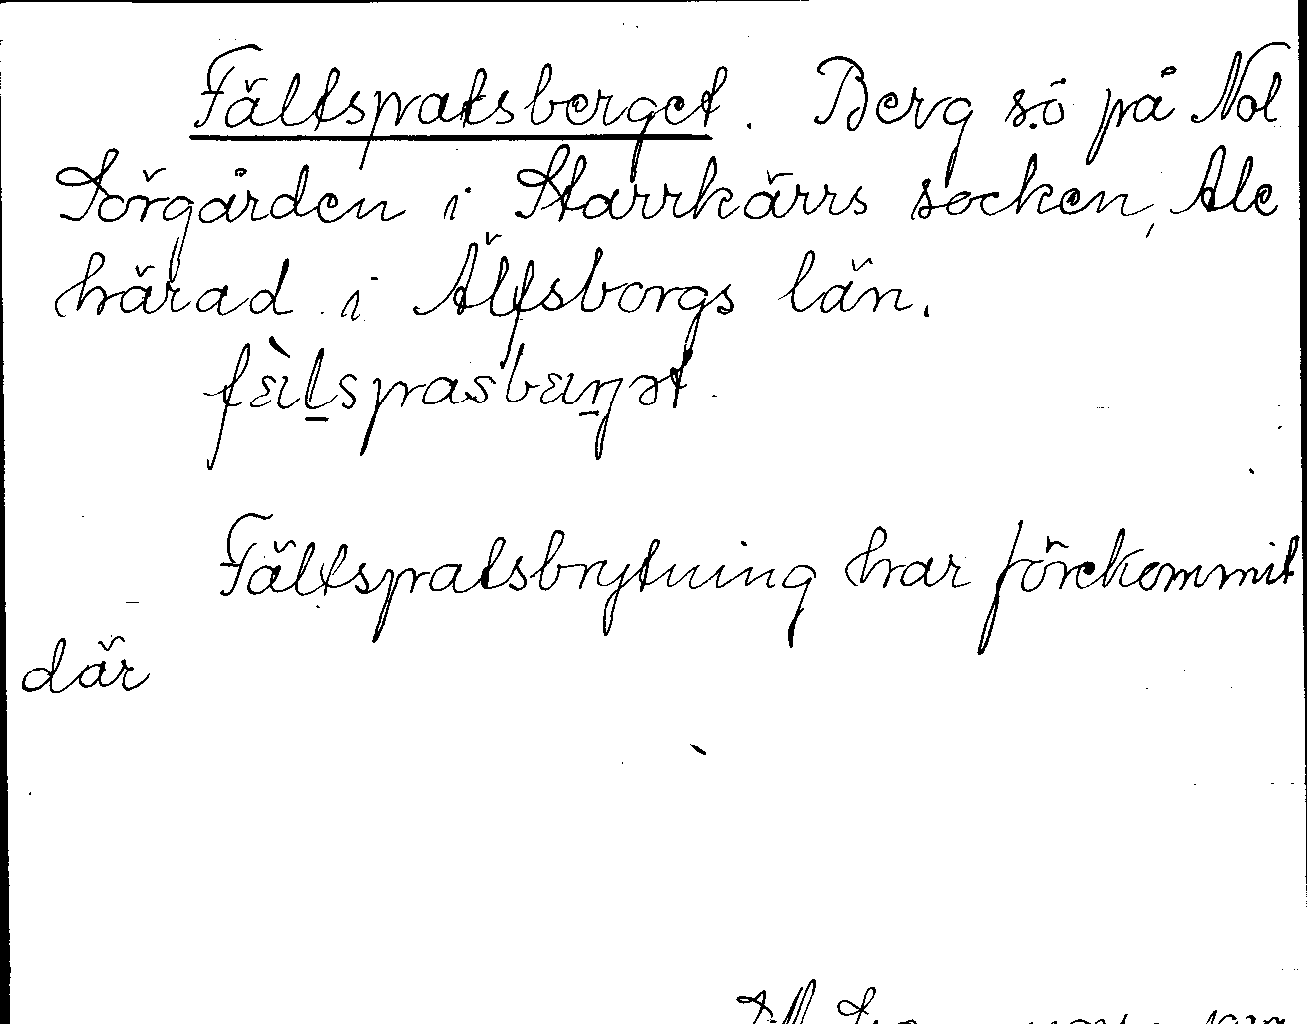 Fältspatsberget. Berg s.ö på Nol
Sörgården i Starrkärrs socken, Ale
härad i Älfsborgs län.
fältspatsbrytning har förekommit
där